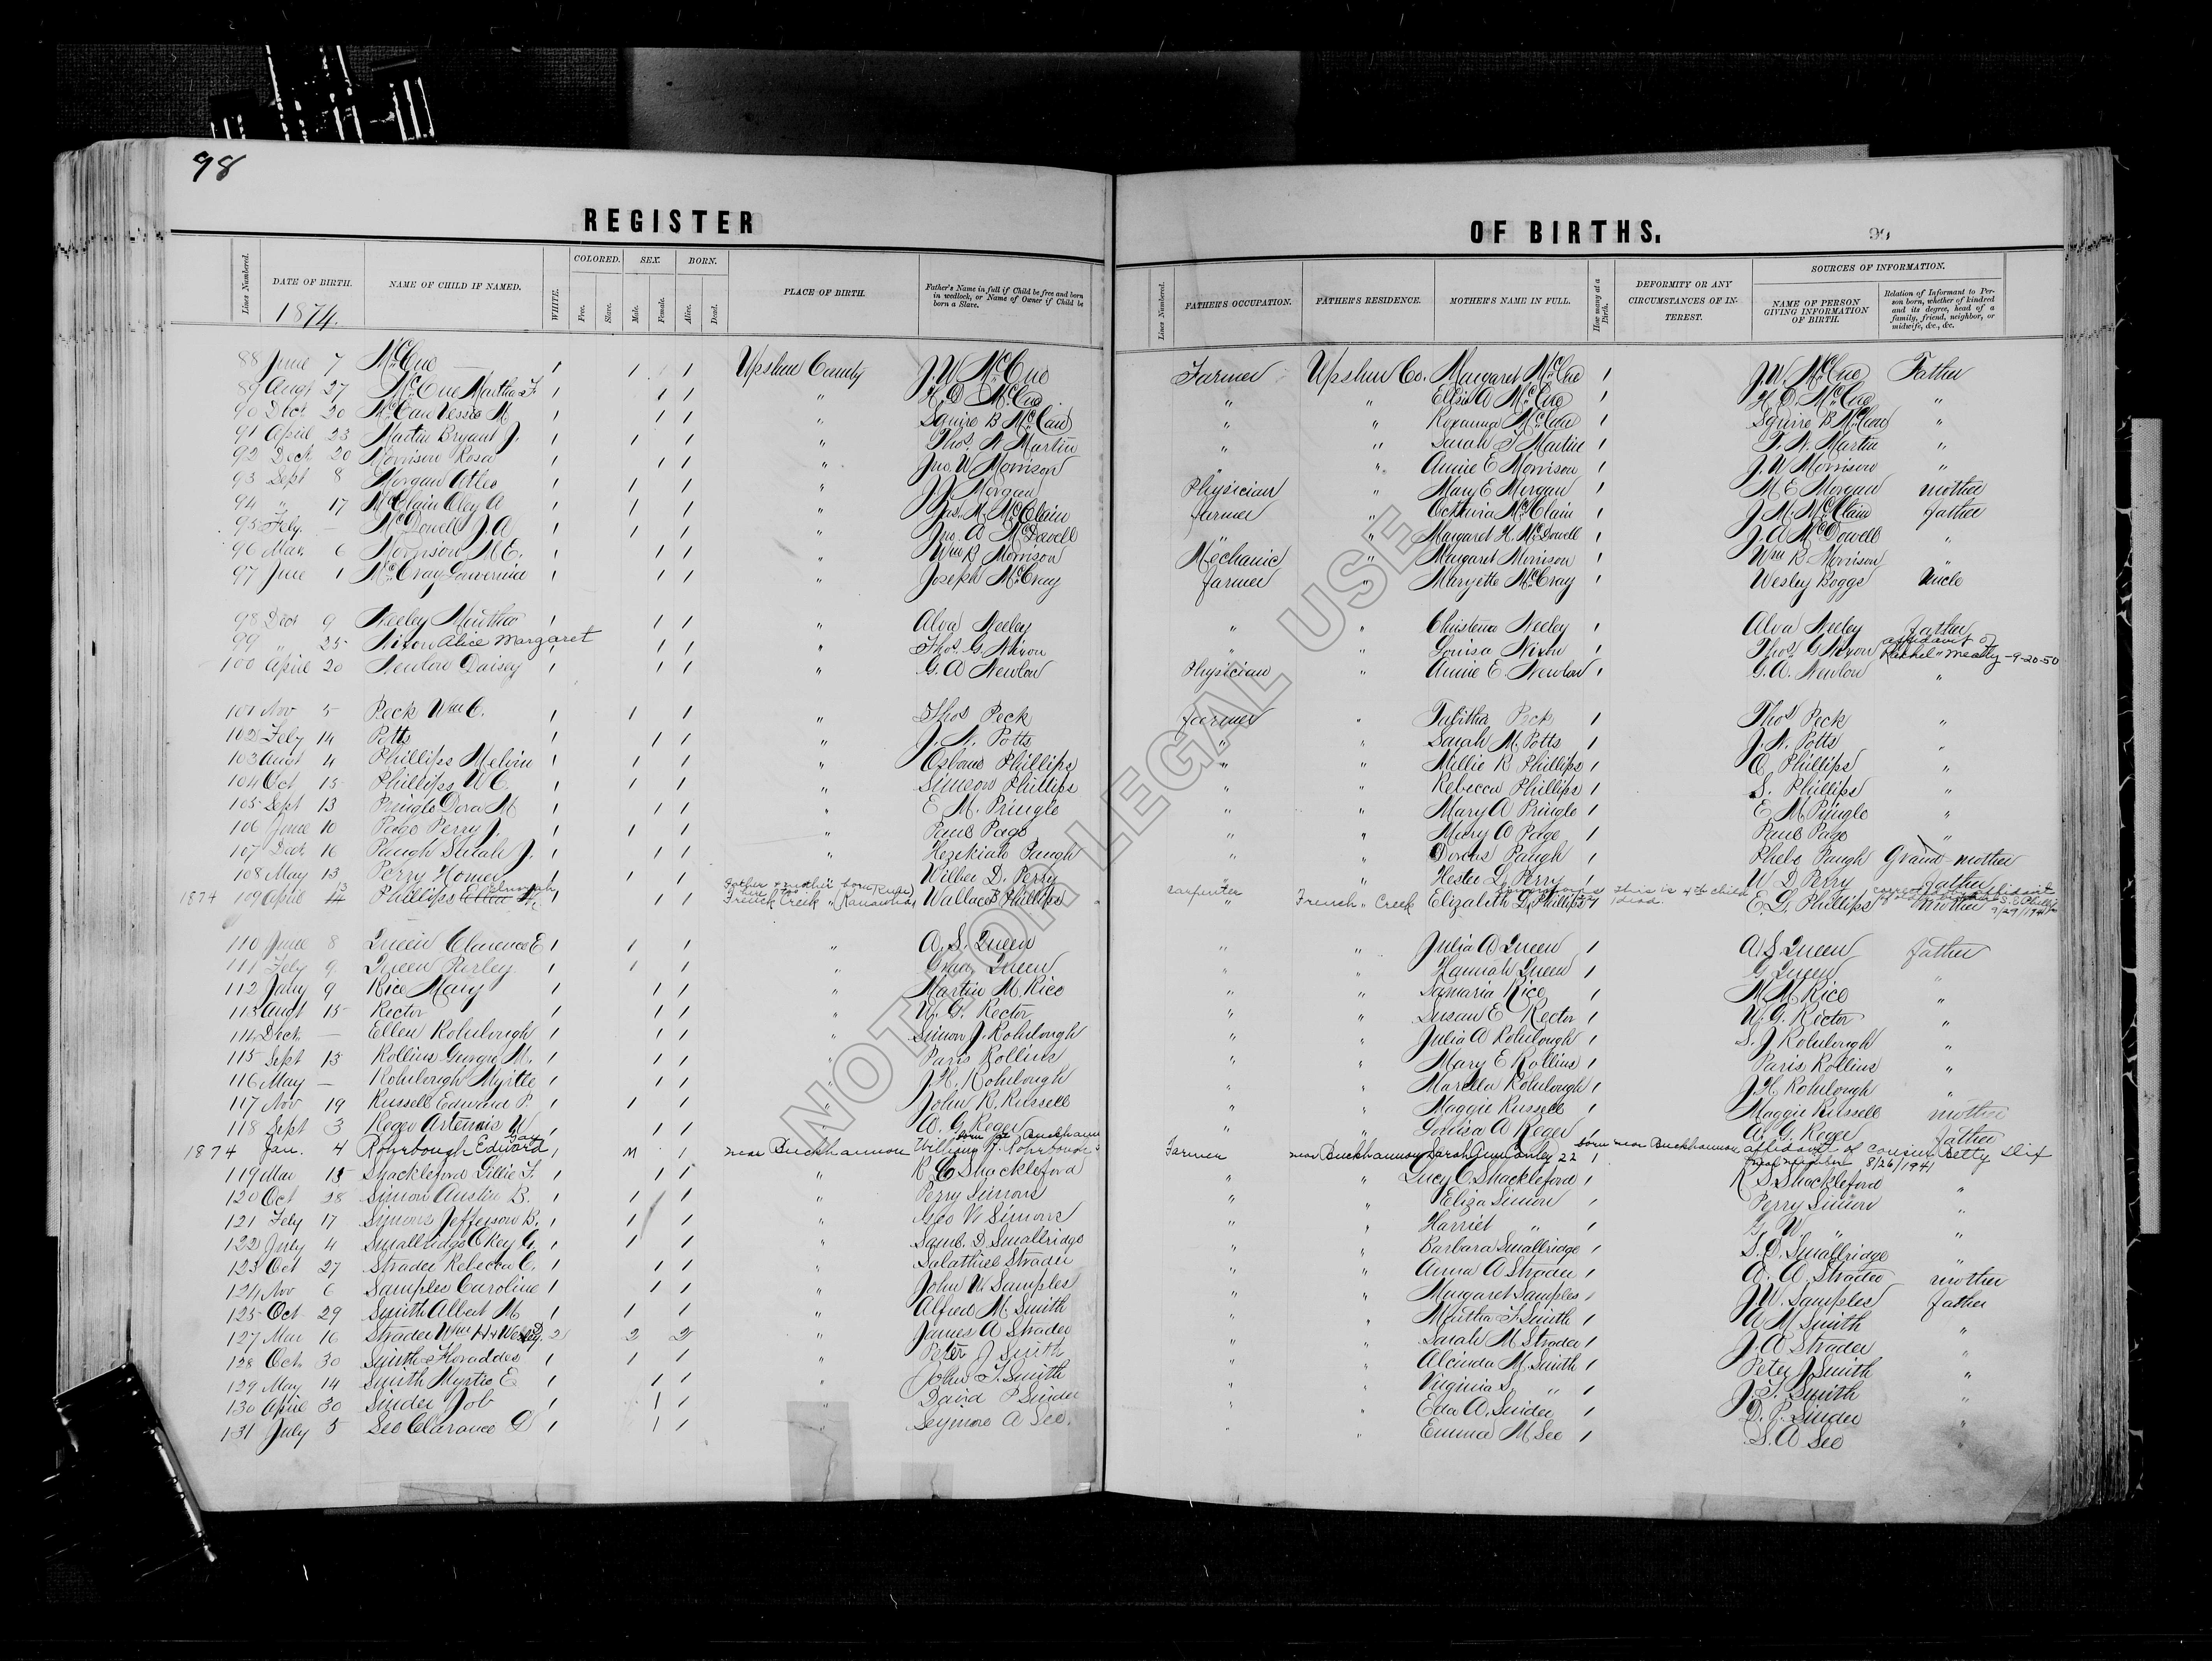 98
REGISTER
OF BIRTHS.
99
Lines Numbered.
DATE OF BIRTH.
1874.
NAME OF CHILD IF NAMED.
WHITE.
COLORED.
Free.
Slave.
SEX.
Male.
Female.
BORN.
Alive.
Dead.
PLACE OF BIRTH.
Father's Name in full if Child be free and born in wedlock, or Name of Owner if Child be born a Slave.
Lines Numbered.
FATHER'S OCCUPATION.
FATHER'S RESIDENCE.
MOTHER'S NAME IN FULL.
How many at a Birth.
DEFORMITY OR ANY CIRCUMSTANCES OF INTEREST.
SOURCES OF INFORMATION.
NAME OF PERSON GIVING INFORMATION OF BIRTH.
Relation of Informant to Person born, whether of kindred and its degree, head of a family, friend, neighbor, or midwife, &c., &c.
88 June 7 McCue — 1 1 1 Upshur County J. W. McCue Farmer Upshur Co. Margaret McCue 1 J. W. McCue Father
89 Augt 27 McCue Martha F. 1 1 1 " H. D. McCue " " Ellsie A McCue 1 H. D. McCue "
90 Dect 20 McCan Vessie M 1 1 1 " Squire B McCan " " Roxanna McCan 1 Squire B McCan "
91 April 23 Martin Bryant J. 1 1 1 " Thos. N Martin " " Sarah F Martin 1 T. N. Martin "
92 Dect 20 Morrison Rosa 1 1 1 " Jno. W Morrison " " Annie E Morrison 1 J. W Morrison "
93 Sept 8 Morgan Atlee 1 1 1 " Morgan Physician " Mary E Morgan 1 M. E. Morgan mother
94 " 17 McClain Aley A 1 1 1 " Jas. M. McClain farmer " McClain 1 J. M. McClain father
95 Feby. — McDowell J. A 1 1 1 " Jno. A McDowell " " Margaret H. McDowell 1 J. A McDowell "
96 Mar. 6 Morrison M. E. 1 1 1 " Wm R Morrison Mechanic " Margaret Morrison 1 Wm R Morrison "
97 June 1 McCray 1 1 1 " Joseph McCray farmer " Maryette McCray 1 Wesley Boggs Uncle
98 Dect 9 Neeley 1 1 1 " Alva Neeley " " Christena Neeley 1 Alva Neeley Father
99 " 25 Nixon Alice Margaret 1 1 1 " Thos. G Nixon " " Louisa Nixon 1 Thos. G Nixon " affidavit of Rachel Meatly -9-20-50
100 April 20 Newlow Daisey 1 1 1 " G. A Newlow Physician " Annie E Newlow 1 G. A. Newlow "
101 Nov 5 Peck Wm C. 1 1 1 " Thos Peck farmer " Tabitha Peck 1 Thos Peck "
102 Feby 14 Potts 1 1 1 " J. N. Potts " " Sarah M Potts 1 J. N. Potts "
103 Augt 4 Phillips Melvin 1 1 1 " Osborne Phillips " " Millie R Phillips 1 O. Phillips "
104 Oct 15 Phillips W C. 1 1 1 " Simeon Phillips " " Rebecca Phillips 1 S. Phillips "
105 Sept 13 Pringle Dora M 1 1 1 " E M. Pringle " " Mary A Pringle 1 E M Pringle "
106 June 10 Page Perry J. 1 1 1 " Paul Page " " Mary A Page 1 Paul Page "
107 Dect 16 Paugh Sarah J. 1 1 1 " Hezekiah Paugh " " Dorcas Paugh 1 Phebe Paugh Grand mother
108 May 13 Perry Homer 1 1 1 " Wilber D. Perry " " Hester L. Perry 1 W. D Perry father
1874 109 April 13 14 Phillips 1 1 1 Father & mother born French Creek " (Kanawha) Wallace B Phillips carpenter French Creek Elizabeth G. Phillips 1 This is 4th child 1 dead. E. G. Phillips mother 9/29/1941
110 June 8 Queen Clarence E 1 1 1 " A. S. Queen " " Julia A Queen 1 A. S Queen father
111 Feby 9 Queen Perley 1 1 1 " Queen " " Hannah Queen 1 G. Queen "
112 Jany 9 Rice Mary 1 1 1 " Martin M. Rice " " Samaria Rice 1 M. M. Rice "
113 Augt 15 Rector 1 1 1 " W. G. Rector " " Susan E Rector 1 W. G. Rector "
114 Dect — Ellen Rohrbough 1 1 1 " Simon J. Rohrbough " " Julia A Rohrbough 1 S. J Rohrbough "
115 Sept 13 Rollins Georgie M. 1 1 1 " Paris Rollins " " Mary E Rollins 1 Paris Rollins "
116 May — Rohrbough Myrtle 1 1 1 " J. H. Rohrbough " " Marella Rohrbough 1 J. H Rohrbough "
117 Nov 19 Russell Edward P. 1 1 1 " John R. Russell " " Maggie Russell 1 Maggie Russell mother
118 Sept 3 Reger Artemis W 1 1 1 " A. G. Reger " " Louisa A Reger 1 A. G. Reger father
1874 Jan. 4 Rohrbough Edward Gay 1 M 1 near Buckhannon William Rohrbough born Buckhannon Farmer near Buckhannon Sarah Jum 22 1 born near Buckhannon affidavit of cousin Betty Dix 8/26/1941
119 Mar 15 Shackleford Lillie F. 1 1 1 " R. C Shackleford " " Lucy C. Shackleford 1 R. S Shackleford "
120 Oct 28 Simon Austin B. 1 1 1 " Perry Simon " " Eliza Simon 1 Perry Simon "
121 Feby 17 Simons Jefferson B. 1 1 1 " Geo W Simons " " Harriet " 1 G. W. " "
122 July 4 Smallridge Okey G. 1 1 1 " Saml. D Smallridge " " Barbara Smallridge 1 S. D. Smallridge "
123 Oct 27 Strader Rebecca C. 1 1 1 " Salathiel Strader " " Anna A Strader 1 A. A. Strader mother
124 Nov 6 Samples Caroline 1 1 1 " John W Samples " " Margaret Samples 1 J. W. Samples father
125 Oct 29 Smith Albert M 1 1 1 " Alfred M Smith " " Martha F Smith 1 A M Smith "
127 Mar 16 Strader Wm H & Wesley 2 2 2 " James A Strader " " Sarah M Strader 1 J. A Strader "
128 Oct 30 Smith 1 1 1 " Peter J Smith " " Alcinda M. Smith 1 Peter J Smith "
129 May 14 Smith Myrtie E 1 1 1 " John T. Smith " " Virginia S. " 1 J. T. Smith "
130 April 30 Sinder Job 1 1 1 " David P Sinder " " Eda A. Sinder 1 D. P. Sinder "
131 July 5 See Clarance D 1 1 1 " Seymore A See. " " Emma M See 1 S. A See "
NOT FOR LEGAL USE